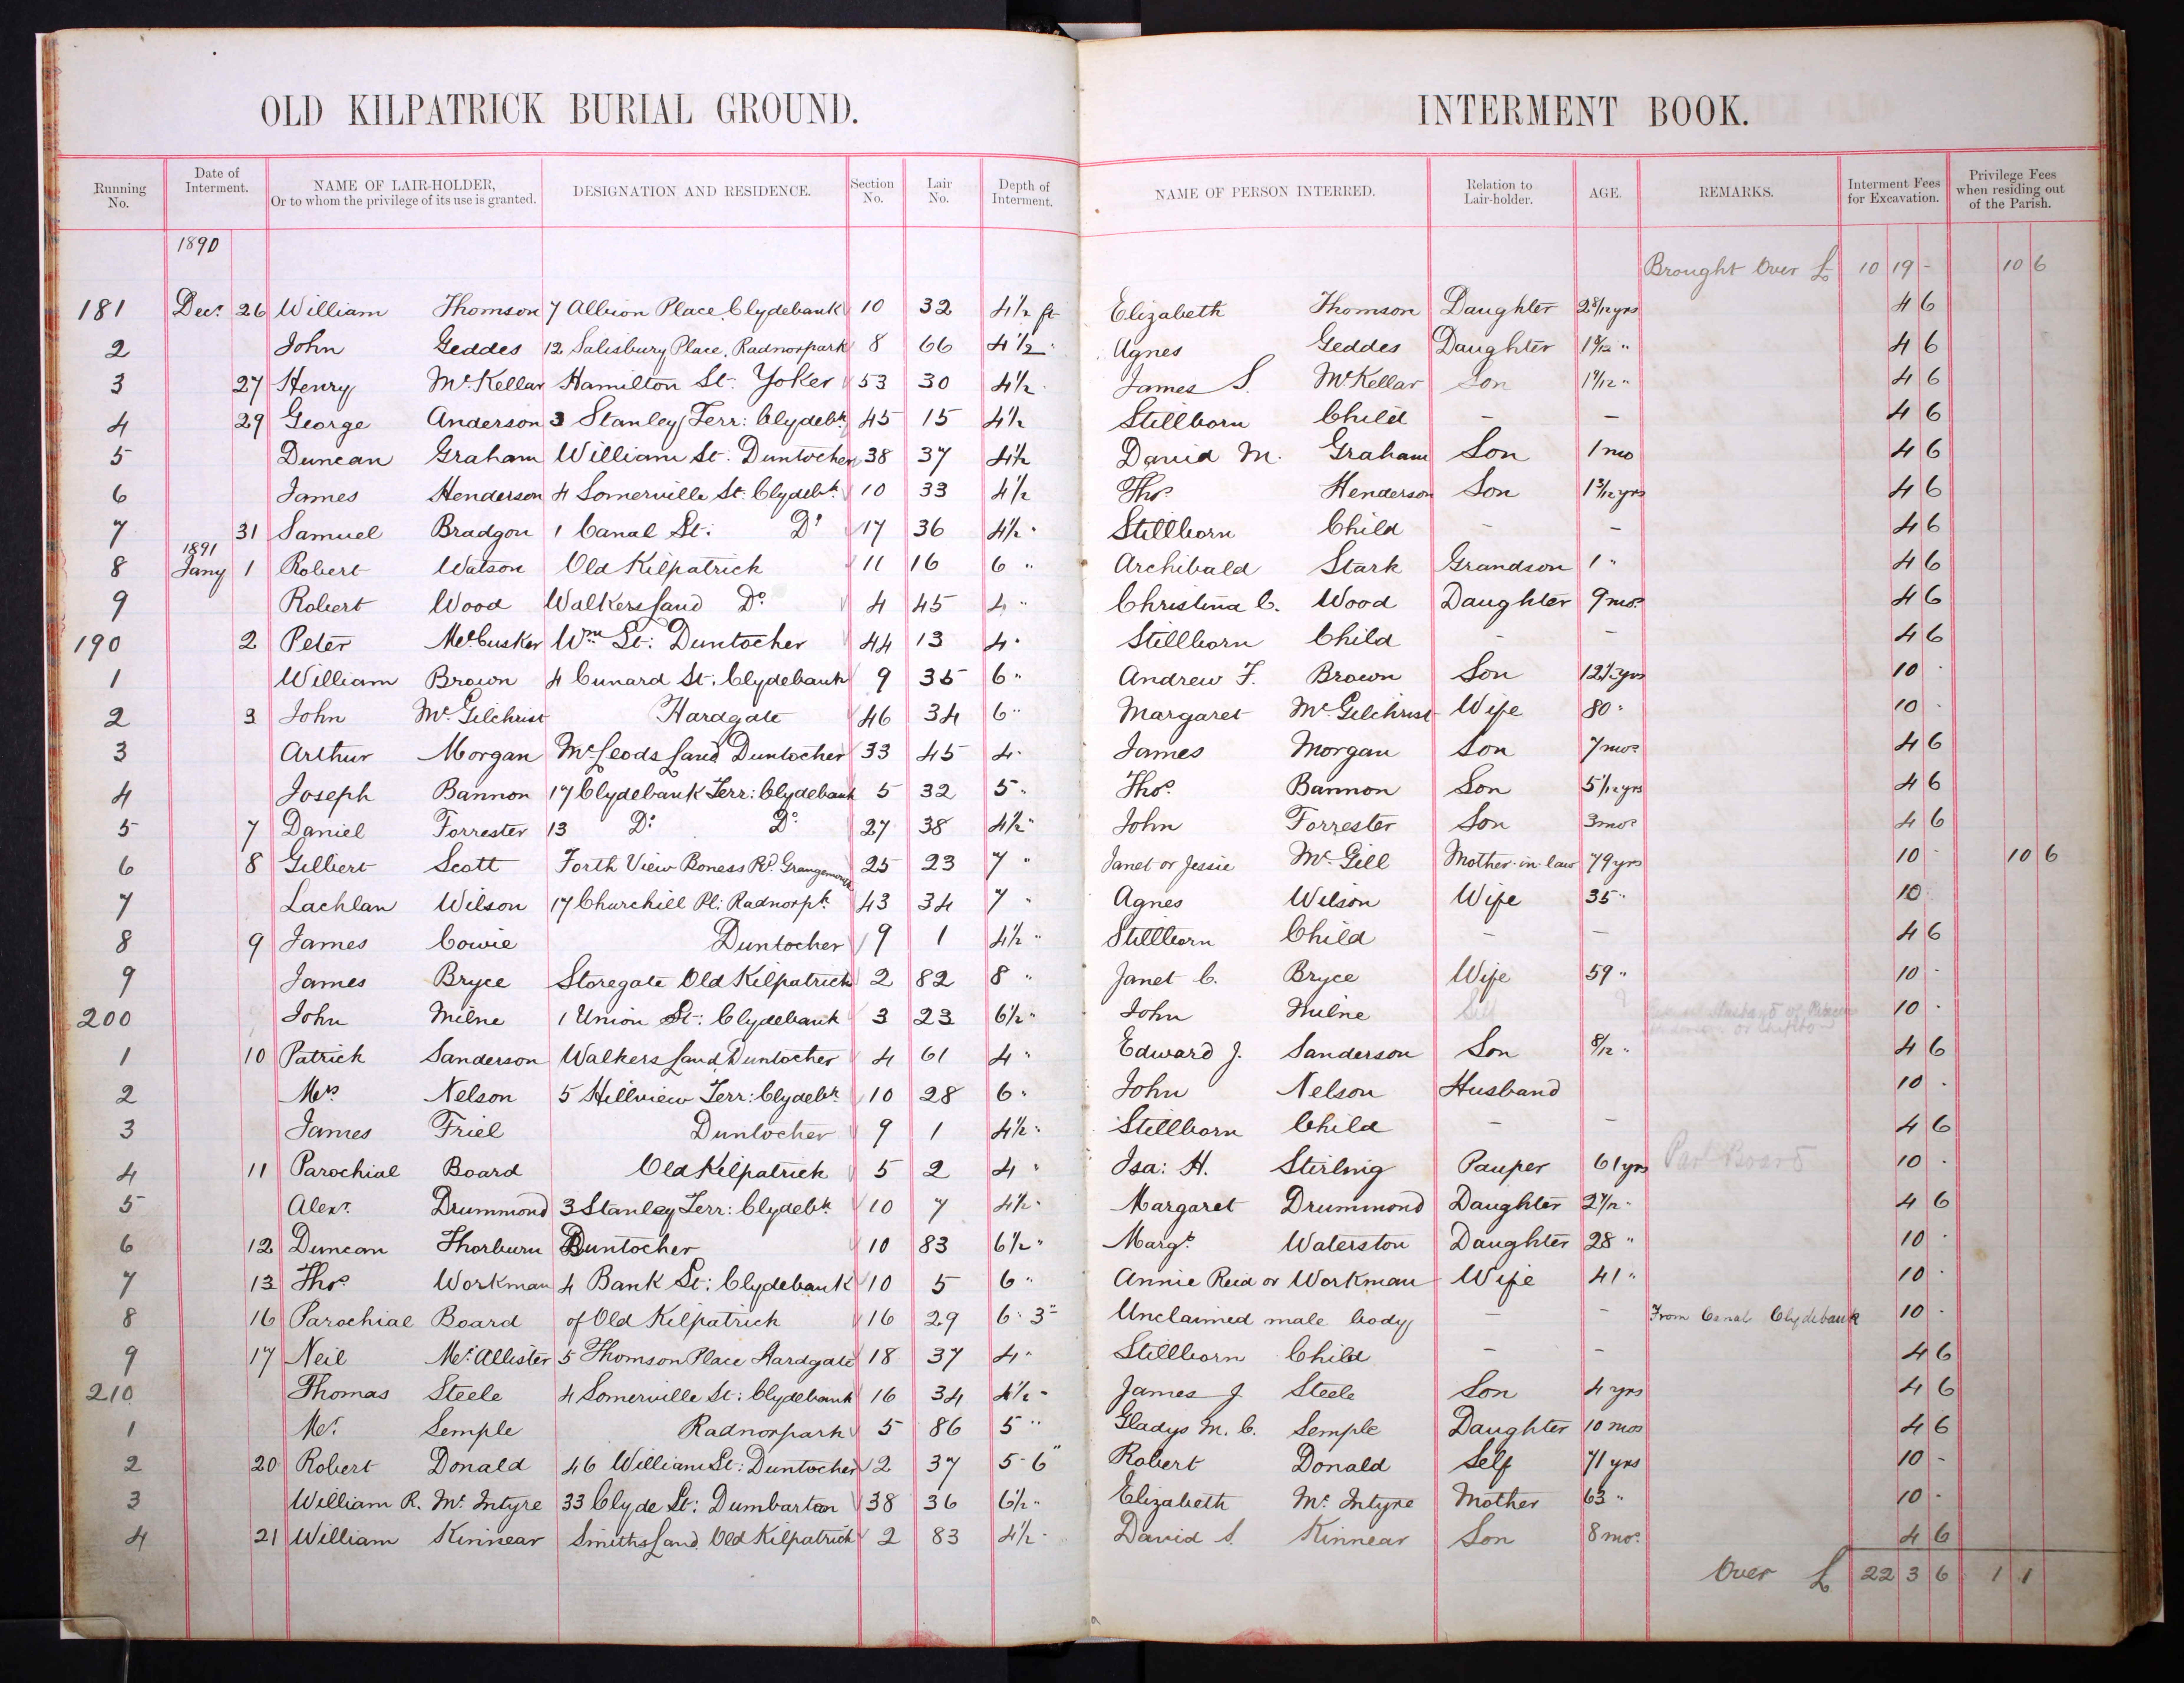 OLD KILPATRICK BURIAL GROUND. INTERMENT BOOK.
Running No. Date of Interment. NAME OF LAIR-HOLDER, Or to whom the privilege of its use is granted. DESIGNATION AND RESIDENCE. Section No. Lair No. Depth of Interment. NAME OF PERSON INTERRED. Relation to Lair-holder. AGE. REMARKS. Interment Fees for Excavation. Privilege Fees when residing out of the Parish.
1890
Brought Over £ 10 19 - 10 6
181 Decr. 26 William Thomson 7 Albion Place, Clydebank 10 32 4½ ft Elizabeth Thomson Daughter 2 8/12 yrs 4 6
2 John Geddes 12 Salisbury Place, Radnorpark 8 66 4½ " Agnes Geddes Daughter 4 6
3 27 Henry McKellar Hamilton St. Yoker 53 30 4½ James S. McKellar Son 4 6
4 29 George Anderson 3 Stanley Terr: Clydebk 45 15 4½ Stillborn Child - - 4 6
5 Duncan Graham William St. Duntocher 38 37 4½ David M. Graham Son 1 mo 4 6
6 James Henderson 4 Somerville St: Clydebk 10 33 4½ Thos. Henderson Son 1 3/12 yrs 4 6
7 31 Samuel Bradgon 1 Canal St: Do 17 36 4½ " Stillborn Child - - 4 6
1891
8 Jany 1 Robert Watson Old Kilpatrick 11 16 6 " Archibald Stark Grandson 1 " 4 6
9 Robert Wood Walkers Land Do. 4 45 4 " Christina C. Wood Daughter 9 mos. 4 6
190 2 Peter McCusker Wm St: Duntocher 44 13 4 " Stillborn Child - - 4 6
1 William Brown 4 Cunard St. Clydebank 9 35 6 " Andrew F. Brown Son 10 -
2 3 John McGilchrist Hardgate 46 34 6 " Margaret McGilchrist Wife 80 " 10 -
3 Arthur Morgan McLeods Land Duntocher 33 45 4 " James Morgan Son 7 mos 4 6
4 Joseph Bannon 17 Clydebank Terr: Clydebank 5 32 5 " Thos. Bannon Son 5 1/12 yrs 4 6
5 7 Daniel Forrester 13 Do. Do. 27 38 4½ " John Forrester Son 3 mos 4 6
6 8 Gilbert Scott Forth View Boness Rd. Grangemouth 25 23 7 " Janet or Jessie McGill Mother-in-law 79 yrs 10 - 10 6
7 Lachlan Wilson 17 Churchill Pl: Radnorpk. 43 34 7 " Agnes Wilson Wife 35 " 10 -
8 9 James Cowie Duntocher 9 1 4½ " Stillborn Child - - 4 6
9 James Bryce Storegate Old Kilpatrick 2 82 8 " Janet C. Bryce Wife 59 " 10 -
200 John Milne 1 Union St: Clydebank 3 23 6½ " John Milne Self 10 -
1 10 Patrick Sanderson Walkers Land, Duntocher 4 61 4 " Edward J. Sanderson Son 8/12 " 4 6
2 Mrs. Nelson 5 Hillview Terr: Clydebk 10 28 6 " John Nelson Husband 10 -
3 James Friel Duntocher 9 1 4½ " Stillborn Child - - 4 6
4 11 Parochial Board Old Kilpatrick 5 2 4 " Isa: H. Stirling Pauper 61 yrs Par Board 10 -
5 Alexr. Drummond 3 Stanley Terr: Clydebk 10 7 4½ " Margaret Drummond Daughter 4 6
6 12 Duncan Thorburn Duntocher 10 83 6½ " Margt. Waterston Daughter 28 " 10 -
7 13 Thos. Workman 4 Bank St: Clydebank 10 5 6 " Annie Reid or Workman Wife 41 " 10 -
8 16 Parochial Board of Old Kilpatrick 16 29 6 " 3 " Unclaimed male body - - From Canal Clydebank 10 -
9 17 Neil McAllister 5 Thomson Place Hardgate 18 37 4 " Stillborn Child - - 4 6
210 Thomas Steele 4 Somerville St: Clydebank 16 34 4½ " James J. Steele Son 4 yrs 4 6
1 Mr. Semple Radnorpark 5 86 5 " Gladys M. C. Semple Daughter 10 mos 4 6
2 20 Robert Donald 46 William St: Duntocher 2 37 5 - 6 " Robert Donald Self 71 yrs 10 -
3 William R. McIntyre 33 Clyde St: Dumbarton 38 36 6½ " Elizabeth McIntyre Mother 63 " 10 -
4 21 William Kinnear Smiths Land Old Kilpatrick 2 83 4½ " David S. Kinnear Son 8 mos. 4 6
Over £ 22 3 6 1 1